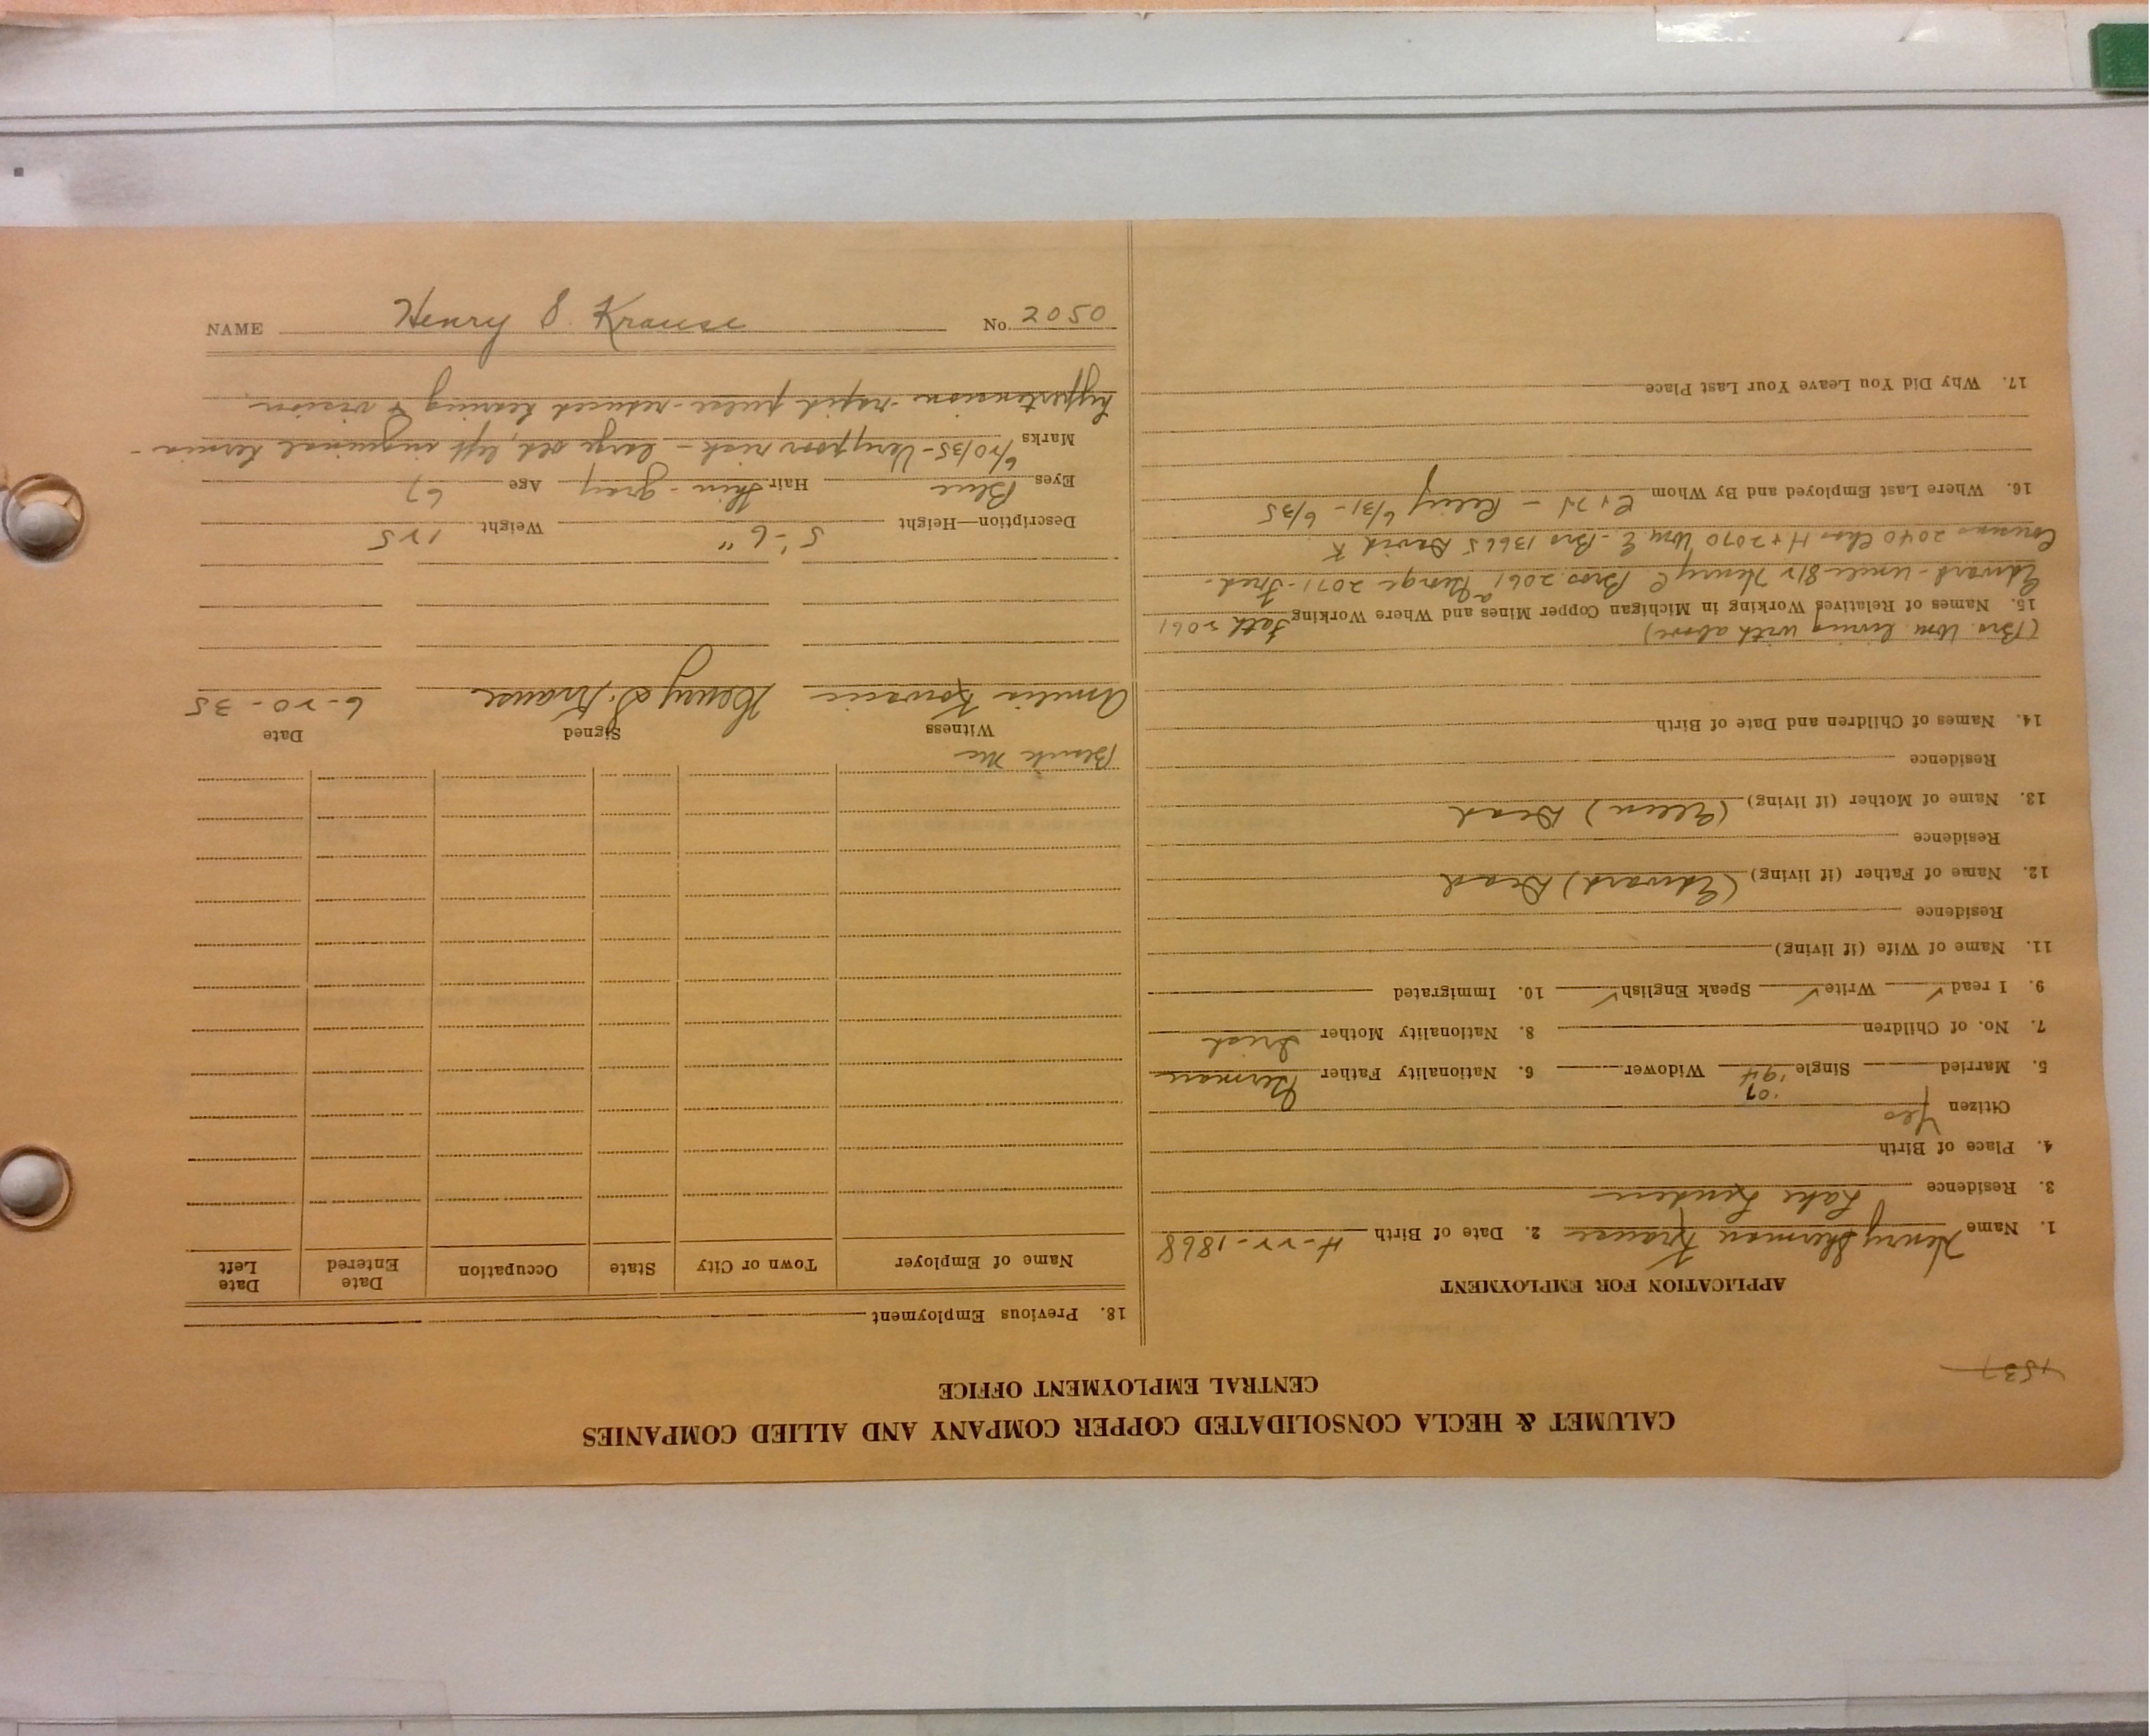 CALUMET & HECLA CONSOLIDATED COPPER COMPANY AND ALLIED COMPANIES
CENTRAL EMPLOYMENT OFFICE
1537
APPLICATION FOR EMPLOYMENT
1. Name Henry Sherman Krause 2. Date of Birth 4-22-1868
3. Residence Lake Linden
4. Place of Birth
Citizen Yes '07
5. Married Single '94 Widower 6. Nationality Father German
7. No. of Children 8. Nationality Mother Irish
9. I read ✓ Write ✓ Speak English ✓ 10. Immigrated
11. Name of Wife (if living)
Residence
12. Name of Father (if living) (Edward) Dead
Residence
13. Name of Mother (if living) (Ellen) Dead
Residence
14. Names of Children and Date of Birth
(Bro. Wm. living with above)
15. Names of Relatives Working in Michigan Copper Mines and Where Working Fath 2061
Edward - Uncle 812 Henry C Bros. 2061a George 2071 - Fred -
Cousins 2040 Chas H + 2070 Wm E. - Bro 13665 David K
16. Where Last Employed and By Whom C + H - Relief 6/31 - 6/35
17. Why Did You Leave Your Last Place
18. Previous Employment
Name of Employer Town or City State Occupation Date Entered Date Left
Blank Me
Witness Signed Date
Amelia Henry S. Krause 6-20-35
Description—Height 5'-6" Weight 125
Eyes Blue Hair Thin - gray Age 67
Marks 6/20/35 - Very poor risk - large old, left inguinal hernia -
hypertension - rapid pulse - reduced hearing & vision.
NAME Henry S. Krause No. 2050